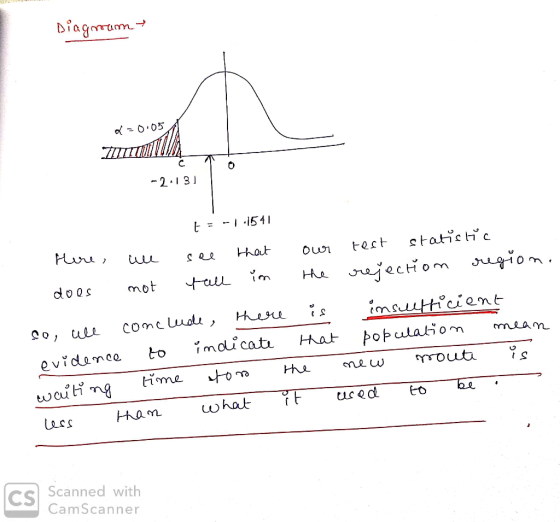 Diagram →
α = 0.05
c
0
-2.131
t = -1.1541
Here, we see that our test statistic
does not fall in the rejection region.
So, we conclude, there is insufficient
evidence to indicate that population mean
waiting time for the new route is
less than what it used to be.
CS Scanned with
CamScanner